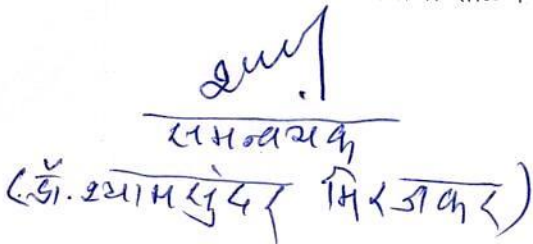 समन्वयक
(डॉ. श्यामसुंदर मिरजकर)